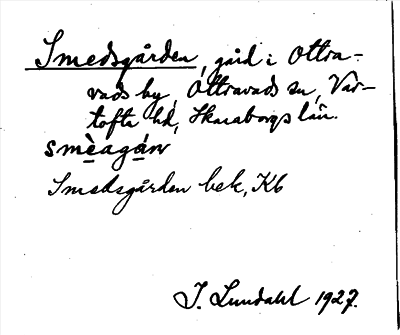 Smedsgården, gård i Ottra-
vads by, Ottravads sn, Var-
tofta hd, Skaraborgs län.
smèagán
Smedsgården bek, K6
J. Lundahl 1927.